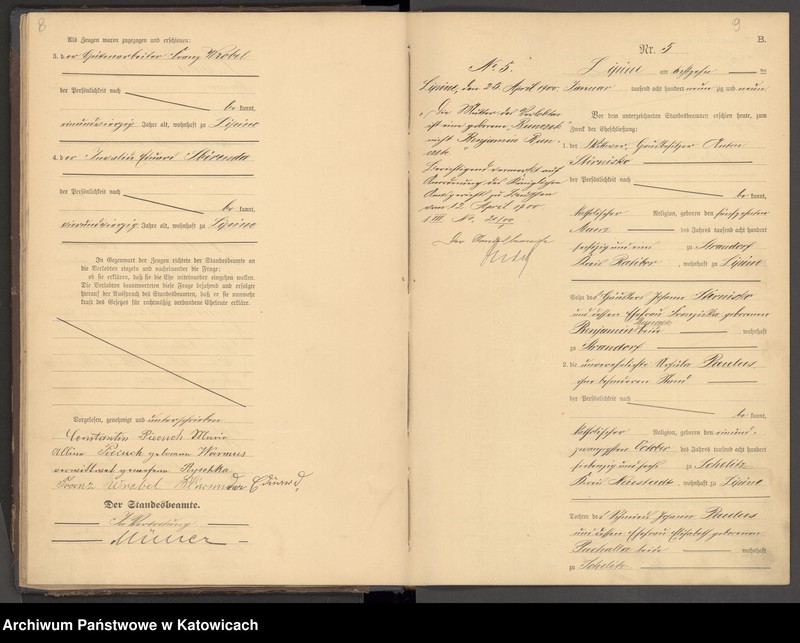 8
Als Zeugen waren zugezogen und erschienen:
3. der Hüttenarbeiter Franz Wrobel
der Persönlichkeit nach
be kannt,
einundvierzig Jahre alt, wohnhaft zu Lipine
4. der Invalide Eduard
der Persönlichkeit nach
be kannt,
vierundvierzig Jahre alt, wohnhaft zu Lipine
In Gegenwart der Zeugen richtete der Standesbeamte an
die Verlobten einzeln und nacheinander die Frage:
ob sie erklären, daß sie die Ehe miteinander eingehen wollen.
Die Verlobten beantworteten diese Frage bejahend und erfolgte
hierauf der Ausspruch des Standesbeamten, daß er sie nunmehr
kraft des Gesetzes für rechtmäßig verbundene Eheleute erkläre.
Vorgelesen, genehmigt und unterschrieben
Constantin Piecuch Marie
Albine Piecuch geborene Warmus
verwittwet gewesene
Franz Wrobel Eduard
Der Standesbeamte.
In Vertretung
Müller
No 5.
Lipine, den 25. April 1900.
Die Mutter des Verlobten
ist eine geborene
nicht Benjamin
Berichtigend vermerkt auf
Anordnung des Königlichen
Amtsgerichts zu Beuthen
vom 12. April 1900
Der Standesbeamte
9
B.
Nr. 5
Lipine am sechszehn ten
Januar tausend acht hundert neun zig und neun
Vor dem unterzeichneten Standesbeamten erschien heute, zum
Zweck der Eheschließung:
1. der Wittwer, Häuslbesitzer Anton
der Persönlichkeit nach
be kannt,
katholischer Religion, geboren den fünfzehnten
Maerz des Jahres tausend acht hundert
sechszig und zu Strandorf
Kreis Ratibor, wohnhaft zu Lipine
Sohn des Häuslers Johann
und dessen Ehefrau Franziska geborenen
Benjamin beide wohnhaft
zu Strandorf
2. die unverehelichte Ursula Paulus
ohne besonderen Stand
der Persönlichkeit nach
be kannt,
katholischer Religion, geboren den einund-
zwanzigsten October des Jahres tausend acht hundert
siebenzig und sechs zu Schelitz
Kreis Neustadt, wohnhaft zu Lipine
Tochter des Schmied Johann Paulus
und dessen Ehefrau Elisabeth geborenen
Puchalla beide wohnhaft
zu Schelitz
Archiwum Państwowe w Katowicach